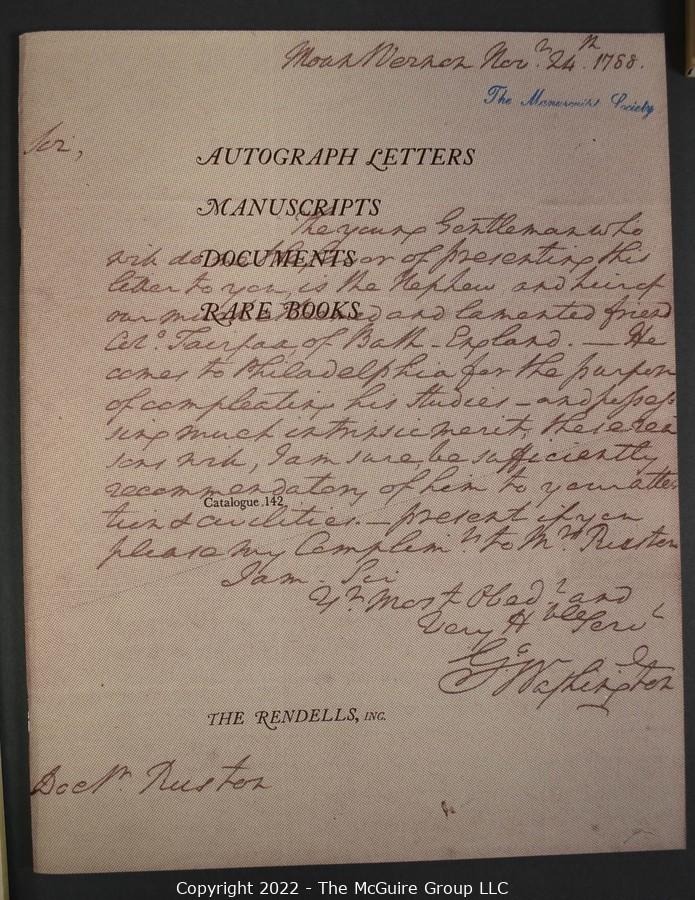 Mount Vernon Nov.r 24th 1788.
The Manuscript Society
Sir,
AUTOGRAPH LETTERS
MANUSCRIPTS
DOCUMENTS
RARE BOOKS
The young Gentleman who
will do of presenting this
letter to you, is the Nephew and heir of
our and lamented friend
Colo. Fairfax of Bath - England. — He
comes to Philadelphia for the purpose
of compleating his studies - and posses-
sing much intrinsic merit, these rea
sons will, I am sure, be sufficiently
recommendatory of him to your atten
tion & civilities. — present if you
please my Complimts to Mrs Ruston
I am - Sir
Yr Most Obedt and
Very Hble Servt
Go Washington
Catalogue 142
THE RENDELLS, INC.
Doctr. Ruston
Copyright 2022 - The McGuire Group LLC